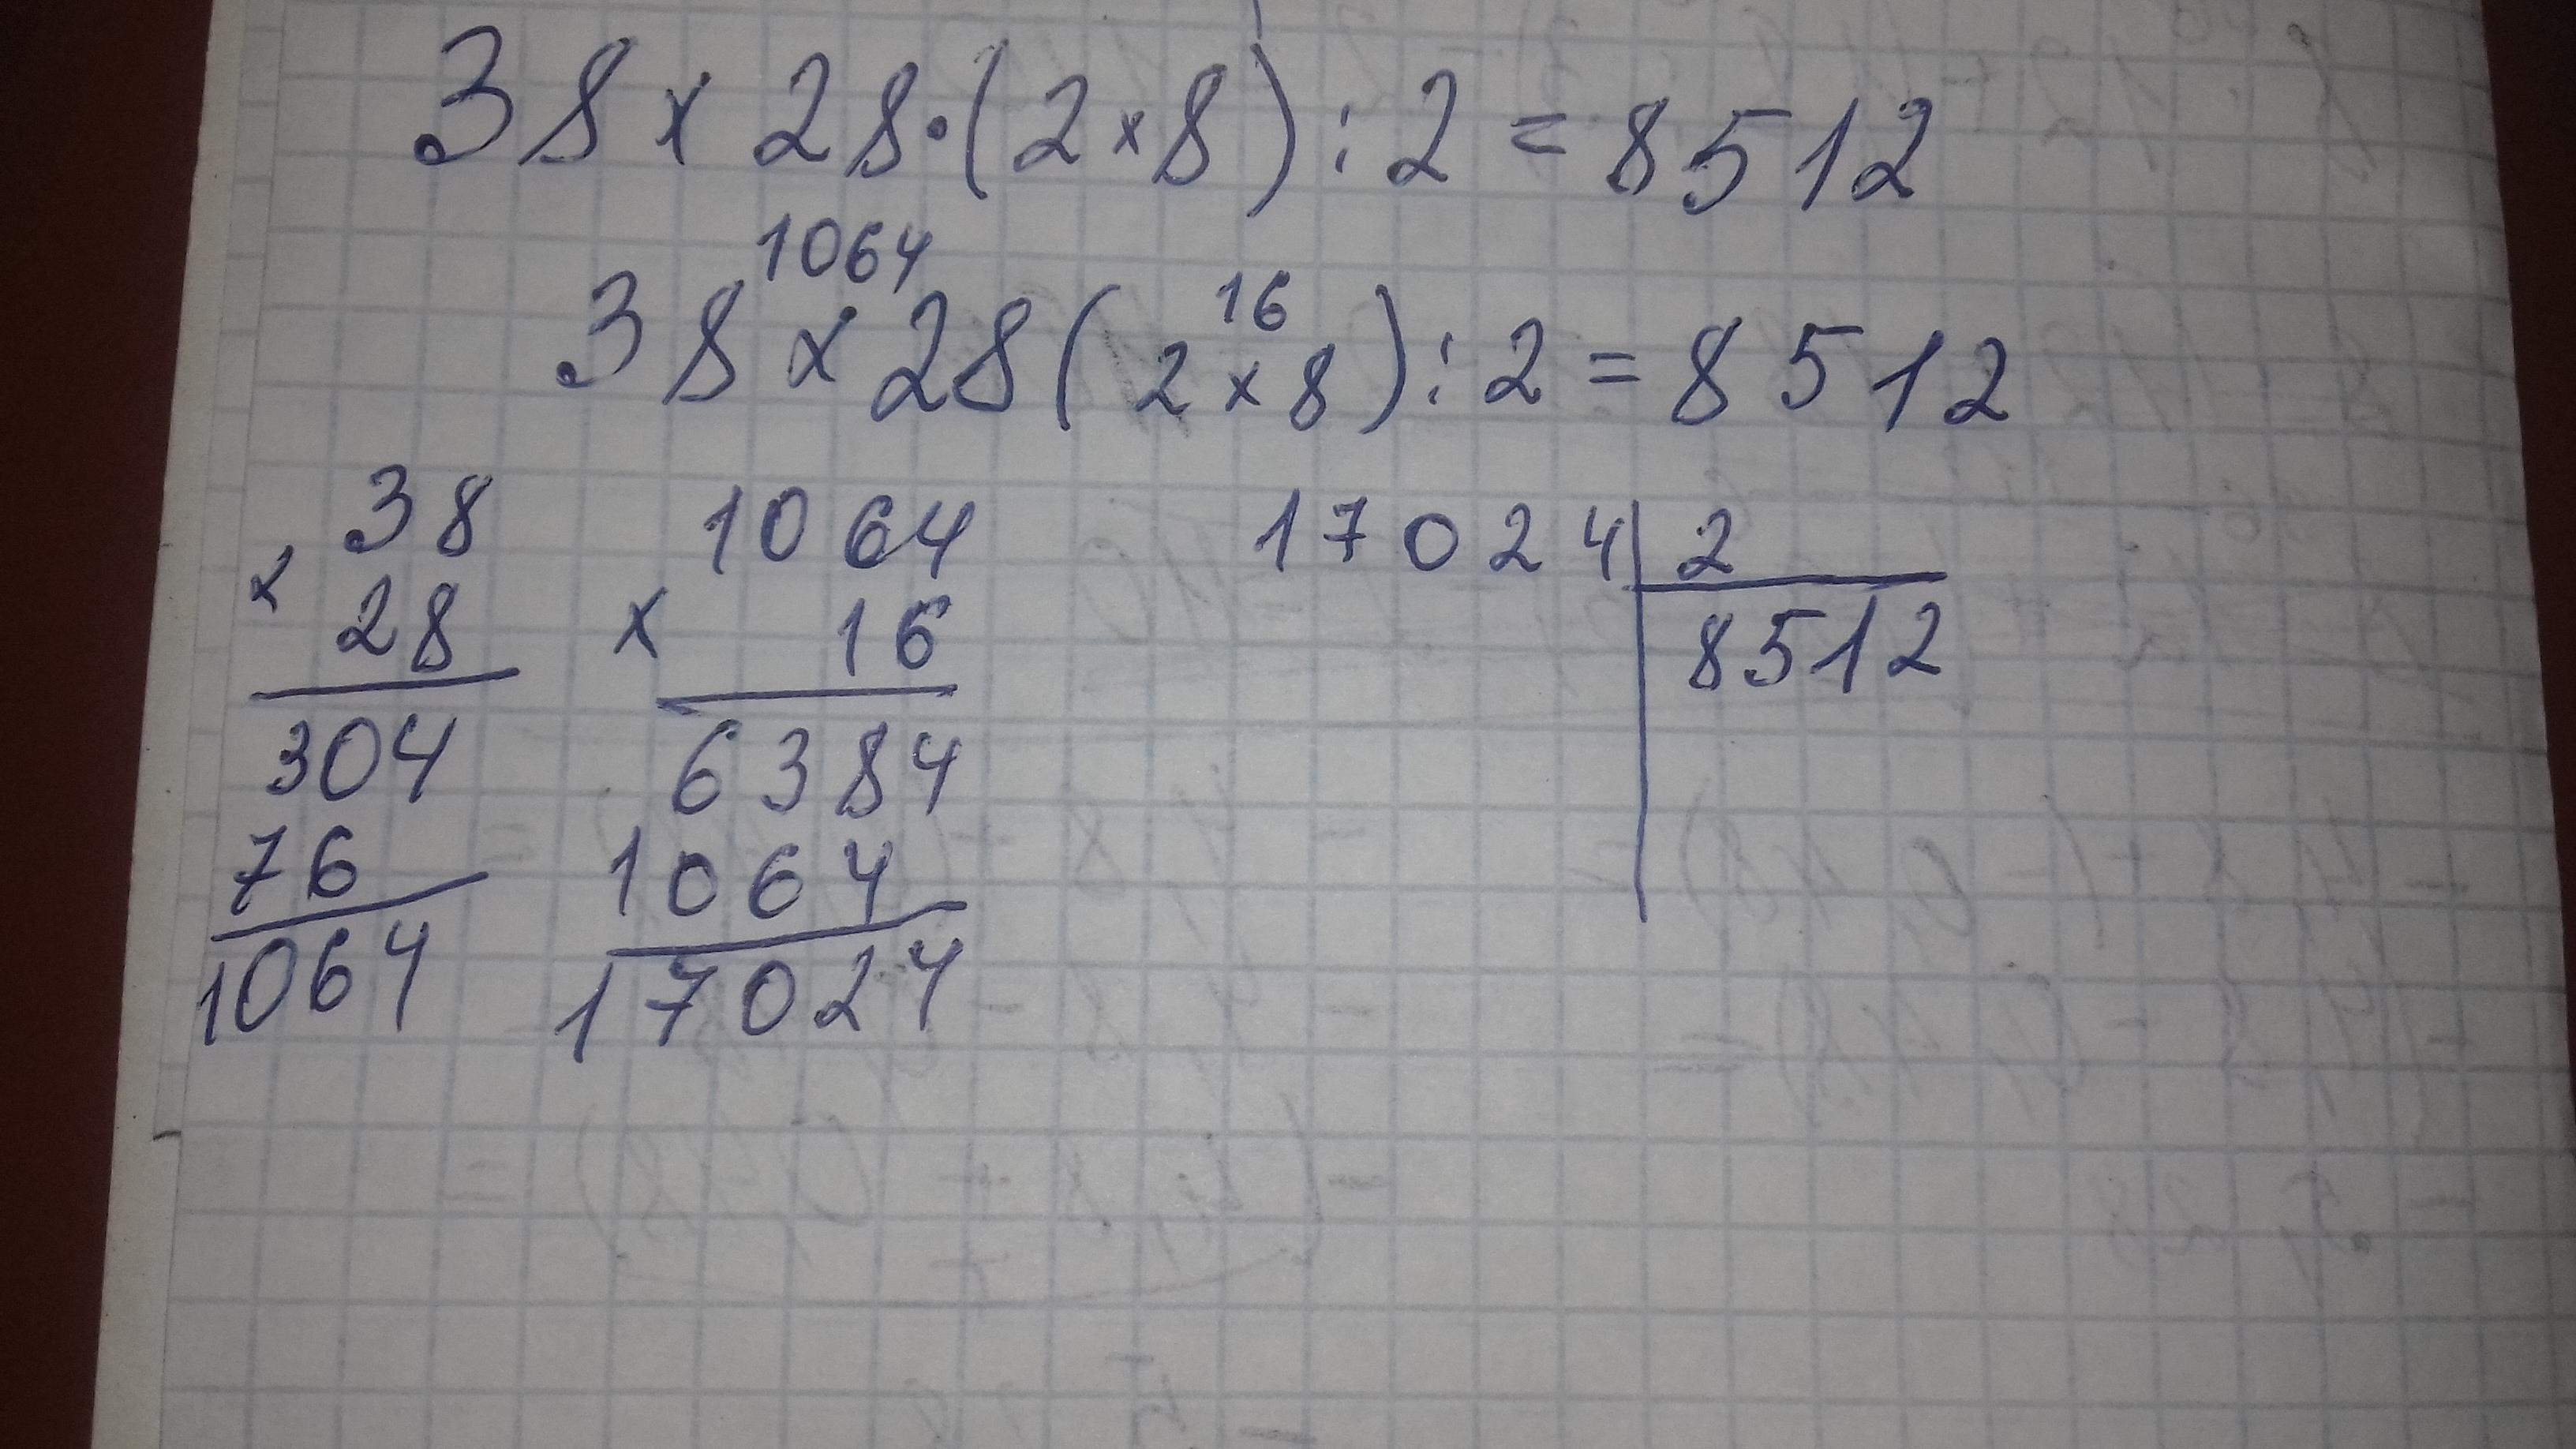 38 x 28·(2 x 8) : 2 = 8512
1064
16
38 x 28( 2 x 8) : 2 = 8512
38
x
28
304
76
1064
1064
x
16
6384
1064
17024
17024 2
8512